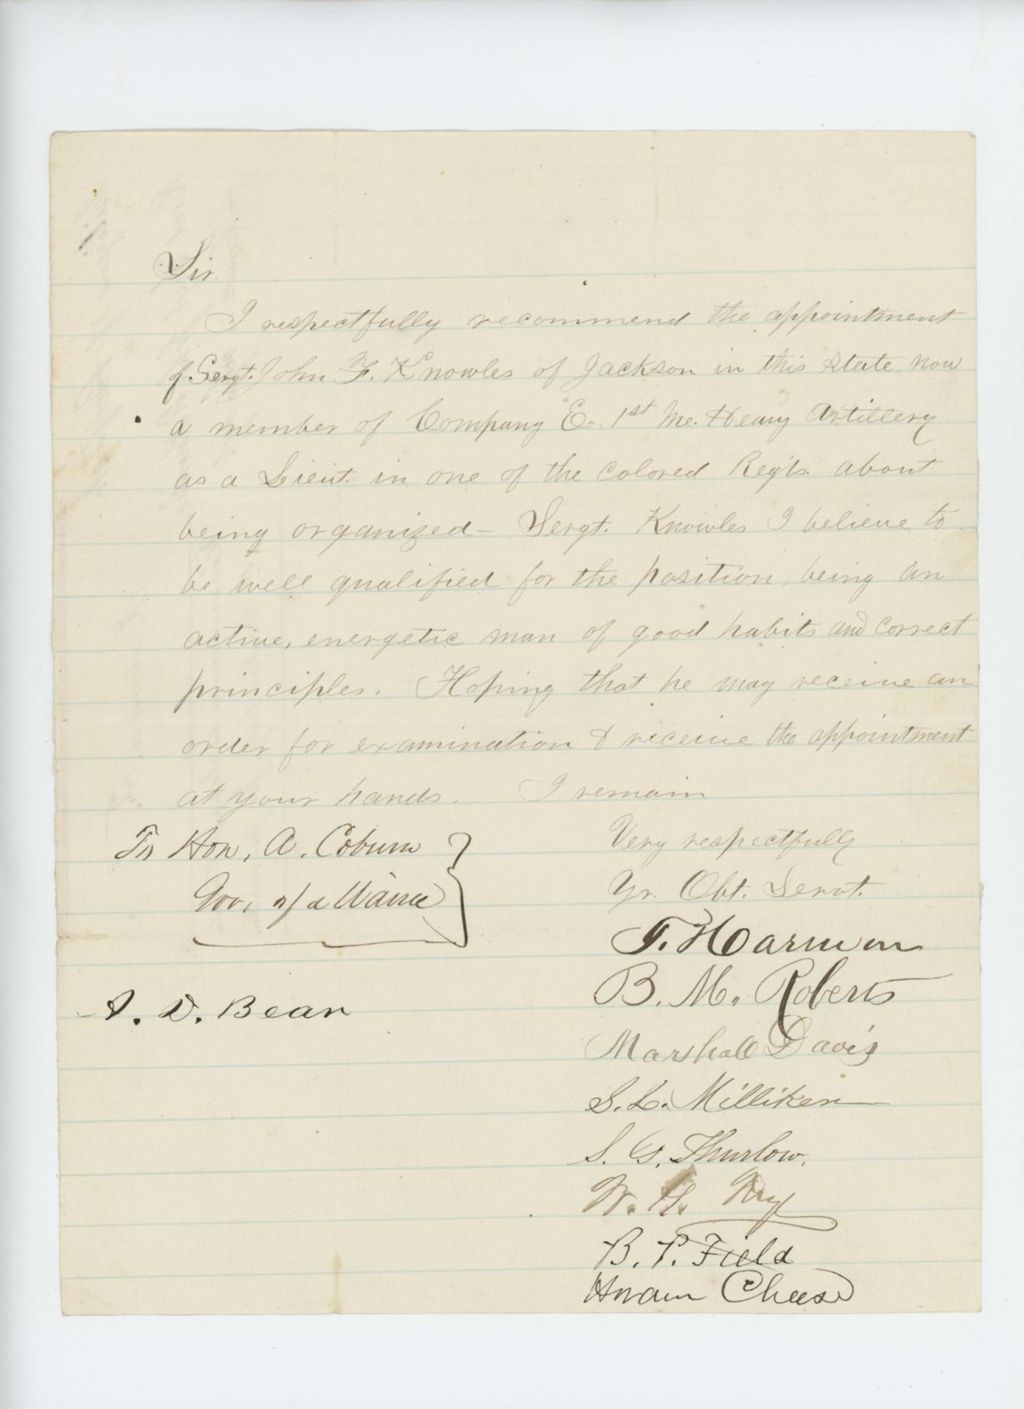 Sir
I respectfully recommend the appointment
of Sergt. John F. Knowles of Jackson in this State, now
a member of Company E. 1st Me. Heavy Artillery
as a Lieut. in one of the Colored Regts. about
being organized – Sergt. Knowles I believe to
be well qualified for the position, being an
active, energetic man of good habits and correct
principles. Hoping that he may receive an
order for examination & receive the appointment
at your hands. I remain
Very respectfully
Yr. Obt. Servt.
To Hon, A. Coburn
Gov, of Maine
A. D. Bean
T. Harmon
B. M. Roberts
Marshall Davis
S. L. Milliken
S. G. Thurlow.
W. H. Fry
B. P. Field
Hiram Chase